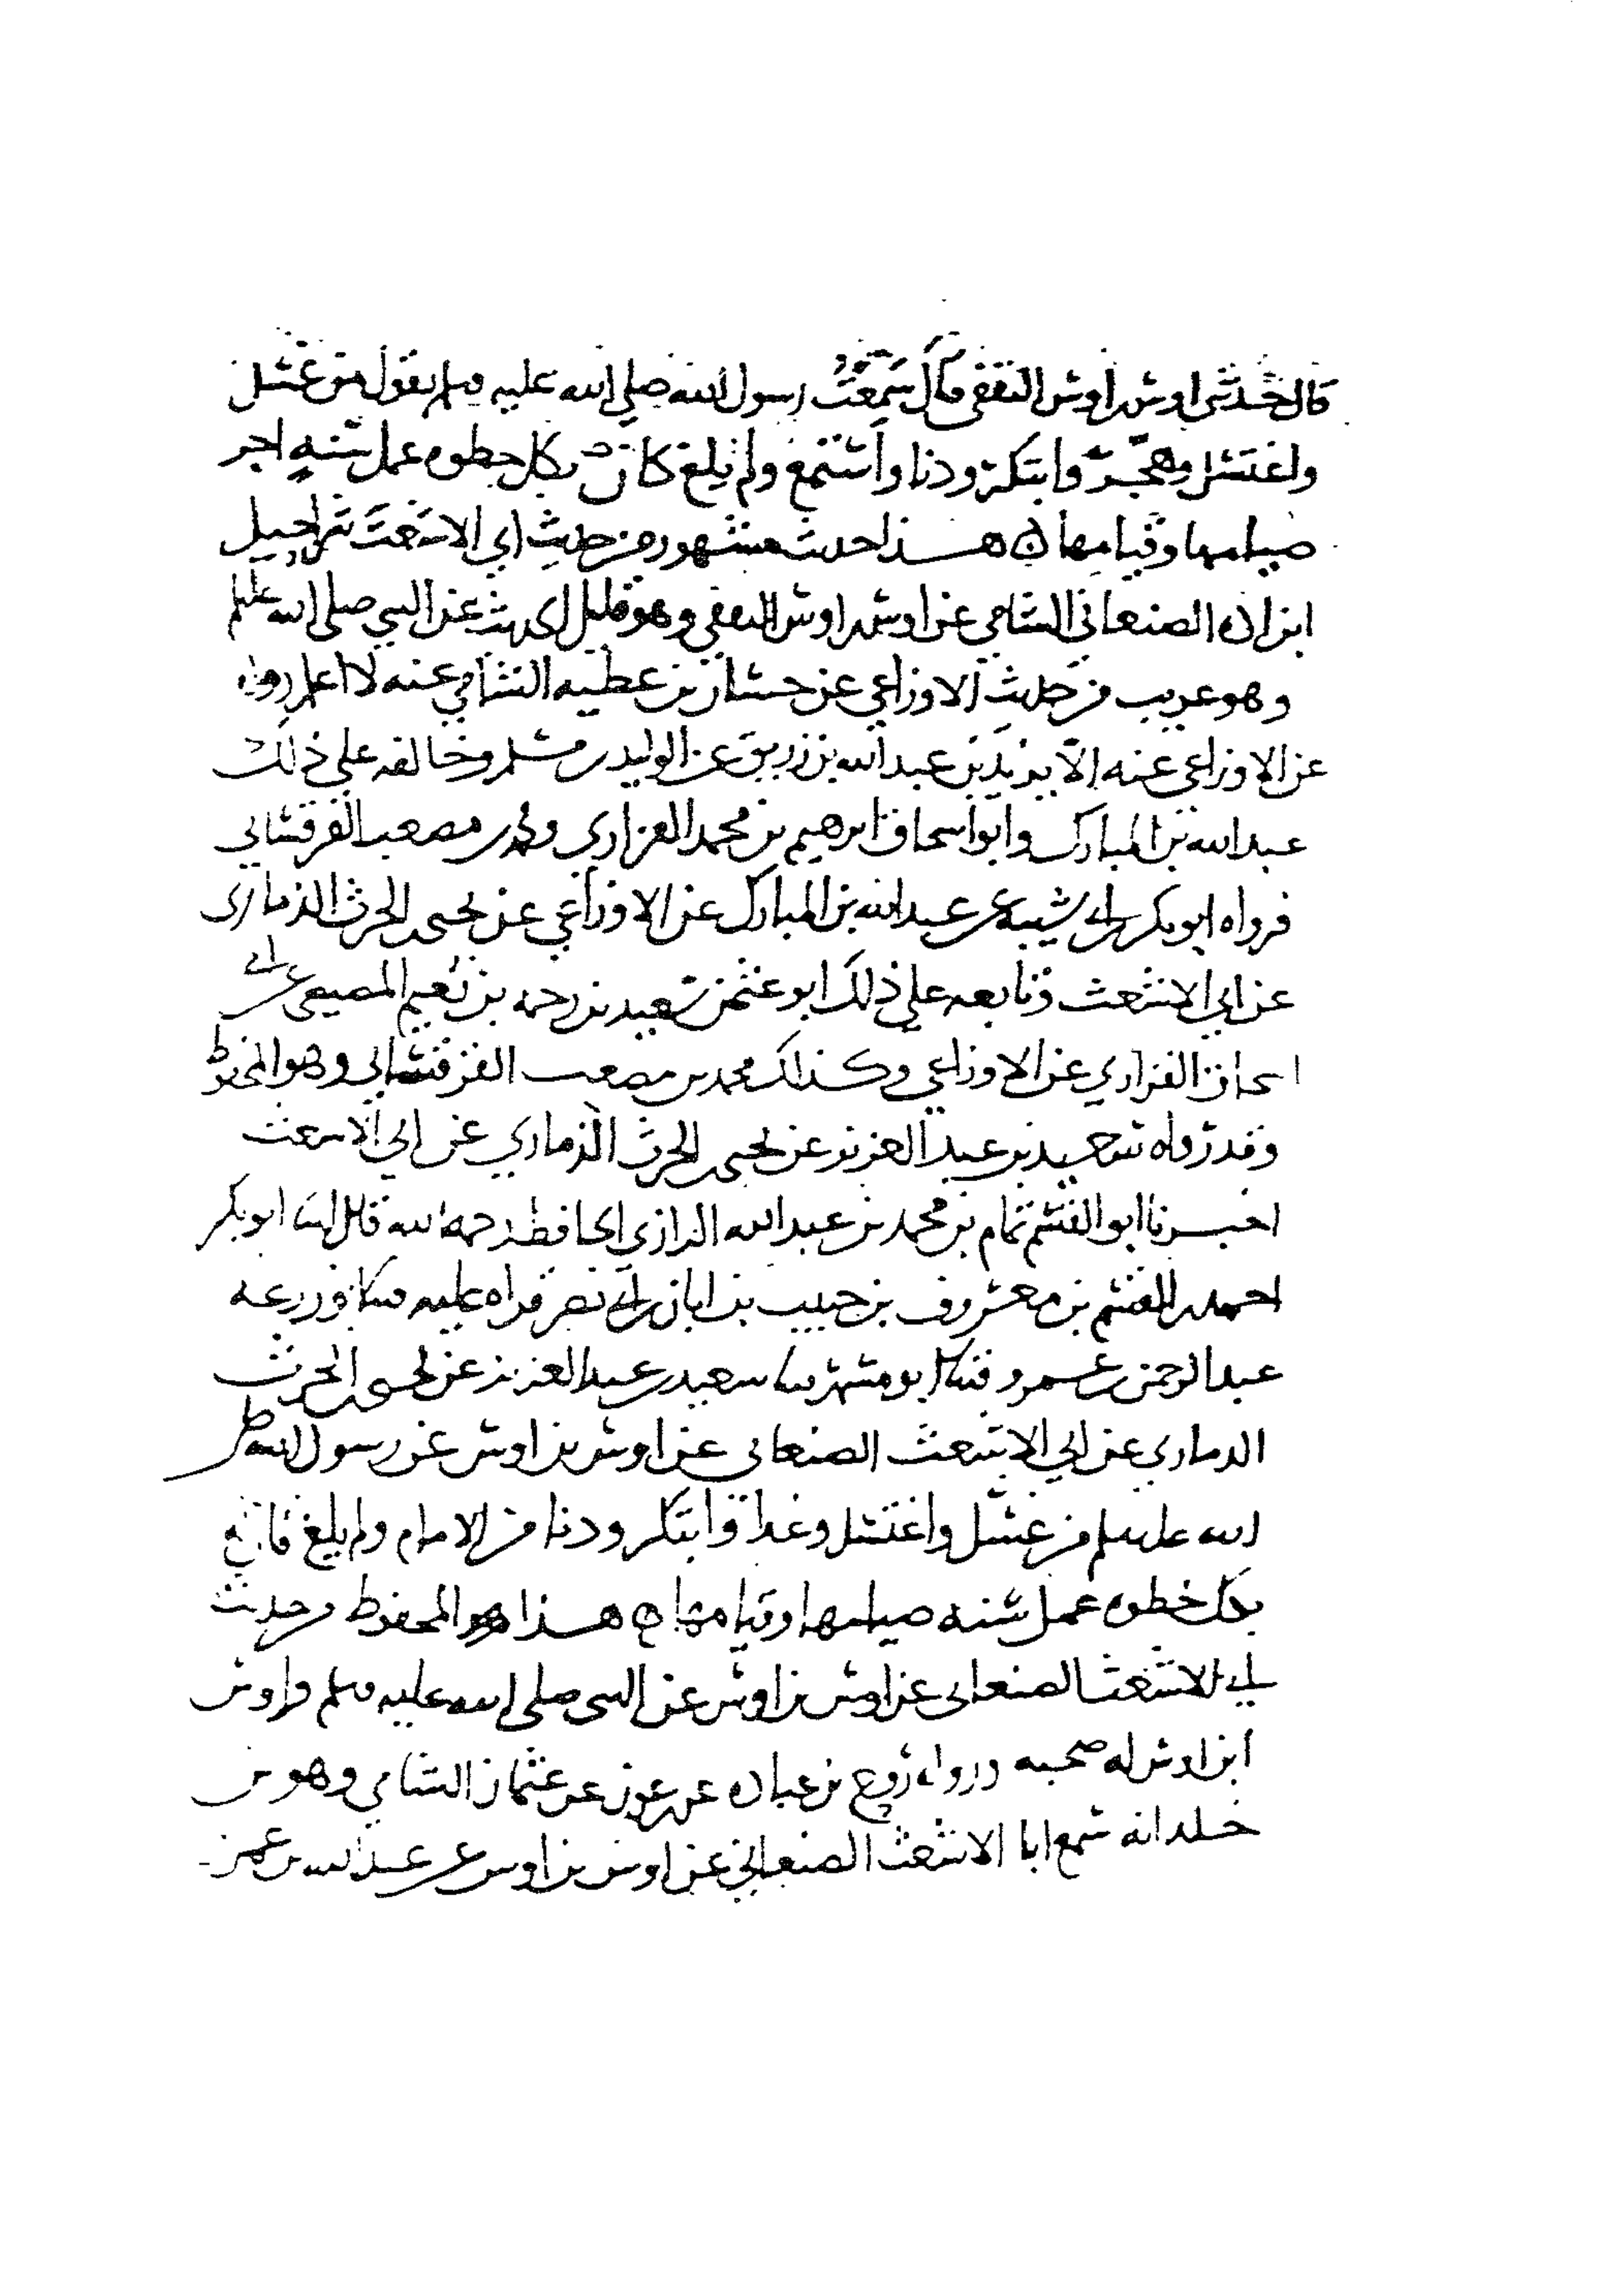 قال حدثني اوس بن اوس الثقفي قال سمعت رسول الله صلى الله عليه وسلم يقول من غسل
واغتسل وهجر وابتكر ودنا واستمع ولم يلغ كان بكل خطوه عمل سنه اجر
صيامها وقيامها هذا حديث مشهور من حديث ابي الاشعث شراحيل
ابن اده الصنعاني الشامي عن اوس بن اوس الثقفي وهو قليل الحديث عن النبي صلى الله عليه وسلم
وهو غريب من حديث الاوزاعي عن حسان بن عطيه الشامي عنه لا اعلم رواه
عن الاوزاعي عنه الا يزيد بن عبد الله بن زريق عن الوليد بن مسلم وخالفه على ذلك
عبد الله بن المبارك وابو اسحاق ابرهيم بن محمد الفزاري ومحمد بن مصعب القرقساني
فرواه ابو بكر بن ابي شيبه عن عبد الله بن المبارك عن الاوزاعي عن يحيى بن الحرث الذماري
عن ابي الاشعث وتابعه على ذلك ابو عثمن سعيد بن رحمه بن نعيم المصيصي عن ابي
اسحاق الفزاري عن الاوزاعي وكذلك محمد بن مصعب القرقساني وهو المحفوظ
وقد رواه سعيد بن عبد العزيز عن يحيى بن الحرث الذماري عن ابي الاشعث
اخبرنا ابو القسم تمام بن محمد بن عبد الله الرازي الحافظ رحمه الله قال ابنا ابو بكر
احمد بن القسم بن معروف بن حبيب بن ابان بن ابي نصر قراه عليه ثنا ابو زرعه
عبد الرحمن بن عمرو ثنا ابو مسهر ثنا سعيد بن عبد العزيز عن يحيى بن الحرث
الذماري عن ابي الاشعث الصنعاني عن اوس بن اوس عن رسول الله صلى
الله عليه وسلم من غسل واغتسل وغدا وابتكر ودنا من الامام ولم يلغ كان له
بكل خطوه عمل سنه صيامها وقيامها هذا هو المحفوظ من حديث
ابي الاشعث الصنعاني عن اوس بن اوس عن النبي صلى الله عليه وسلم واوس
ابن اوس له صحبه ورواه روح بن عباده عن عون عن عثمان الشامي وهو بن
خلد انه سمع ابا الاشعث الصنعاني عن اوس بن اوس عن عبد الله بن عمر